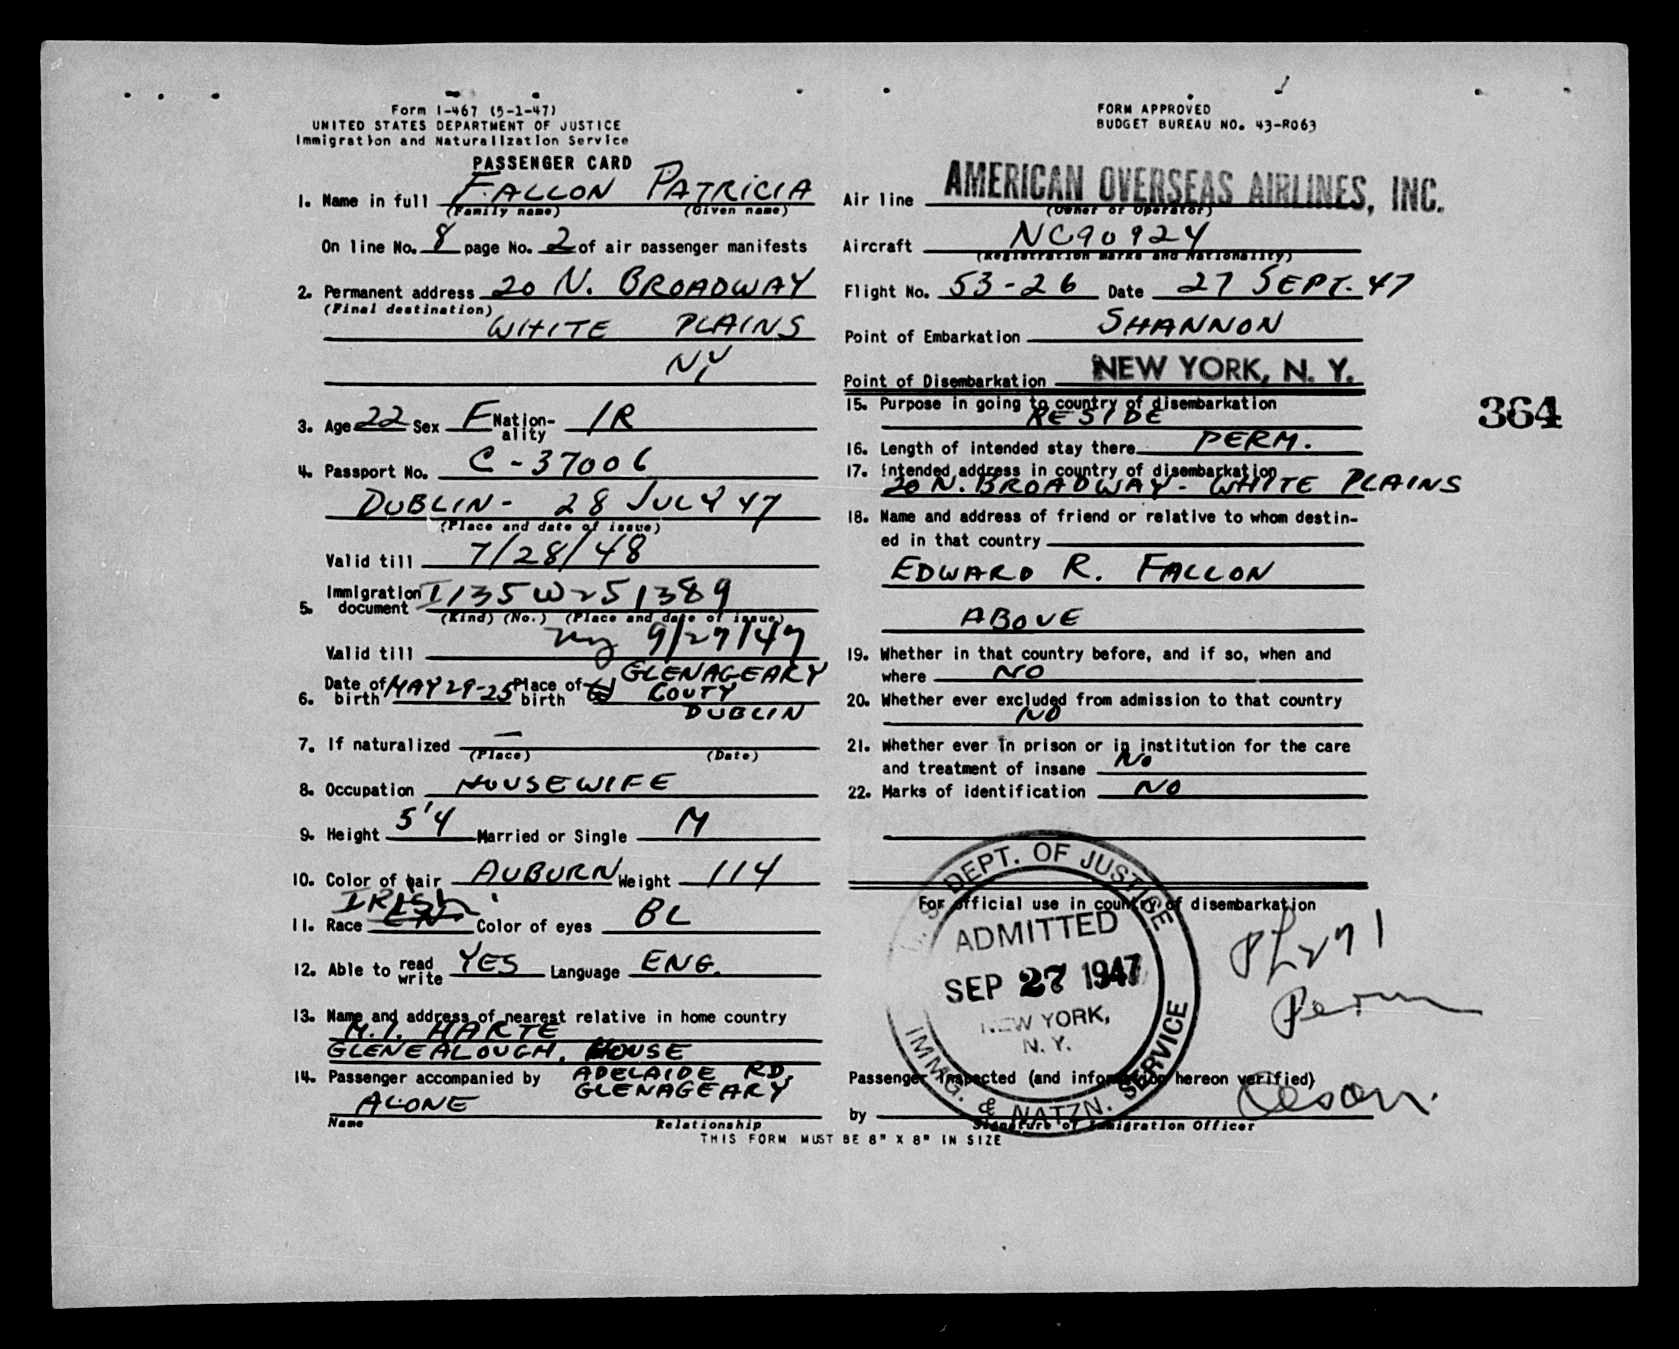 Form I-467 (5-1-47)
UNITED STATES DEPARTMENT OF JUSTICE
Immigration and Naturalization Service
PASSENGER CARD
1. Name in full FALLON PATRICIA
(Family name) (Given name)
On line No. 8 page No. 2 of air passenger manifests
2. Permanent address 20 N. BROADWAY
(Final destination)
WHITE PLAINS
NY
3. Age 22 Sex F Nation-ality IR
4. Passport No. C-37006
DUBLIN - 28 JULY 47
(Place and date of issue)
Valid till 7/28/48
5. Immigration document I135 W251389
(Kind) (No.) (Place and date of issue)
Valid till ny 9/27/47
6. Date of birth MAY 29-25 Place of birth GLENAGEARY
COUTY
DUBLIN
7. If naturalized —
(Place) (Date)
8. Occupation HOUSEWIFE
9. Height 5'4 Married or Single M
10. Color of hair AUBURN Weight 114
IRISH
11. Race EN Color of eyes BL
12. Able to read write YES Language ENG.
13. Name and address of nearest relative in home country
M.I. HARTE
GLENEALOUGH. HOUSE
14. Passenger accompanied by ADELAIDE RD.
GLENAGEARY
ALONE
Name Relationship
THIS FORM MUST BE 8" X 8" IN SIZE
FORM APPROVED
BUDGET BUREAU NO. 43-R063
Air line AMERICAN OVERSEAS AIRLINES, INC.
(Owner or Operator)
Aircraft NC90924
(Registration marks and Nationality)
Flight No. 53-26 Date 27 SEPT. 47
Point of Embarkation SHANNON
Point of Disembarkation NEW YORK, N. Y.
15. Purpose in going to country of disembarkation
RESIDE
364
16. Length of intended stay there PERM.
17. Intended address in country of disembarkation
20 N. BROADWAY - WHITE PLAINS
18. Name and address of friend or relative to whom destin-
ed in that country
EDWARD R. FALLON
ABOVE
19. Whether in that country before, and if so, when and
where NO
20. Whether ever excluded from admission to that country
NO
21. Whether ever in prison or in institution for the care
and treatment of insane No
22. Marks of identification NO
For official use in country of disembarkation
U.S. DEPT. OF JUSTICE
ADMITTED
SEP 27 1947
NEW YORK,
N. Y.
IMMG. & NATZN. SERVICE
PL271
Perm
Passenger inspected (and information hereon verified)
by Olson.
Signature of Immigration Officer